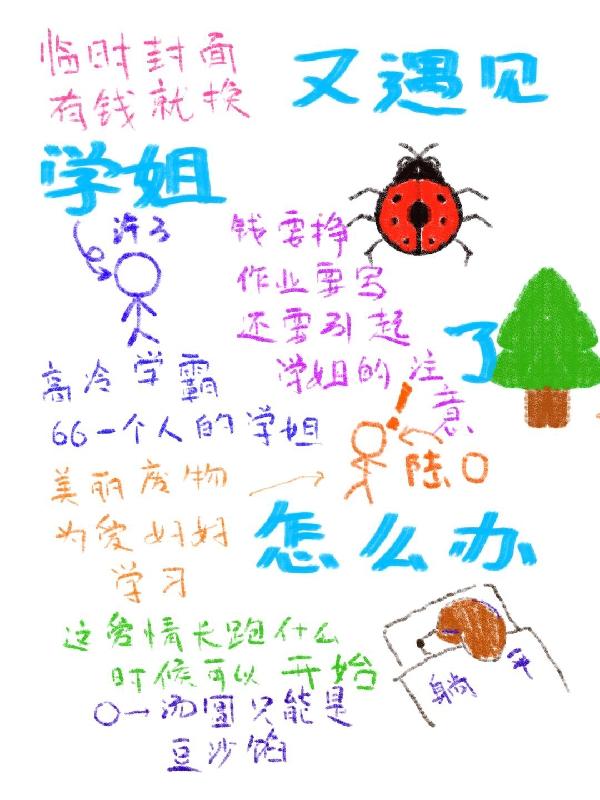 临时封面
有钱就换
又遇见
学姐
了
怎么办
许3
钱要挣
作业要写
还要引起
学姐的注意
高冷学霸
66一个人的学姐
陆0
美丽废物
为爱
学习
这爱情长跑什么
时候可以开始
0一汤圆只能是
豆沙馅
躺平